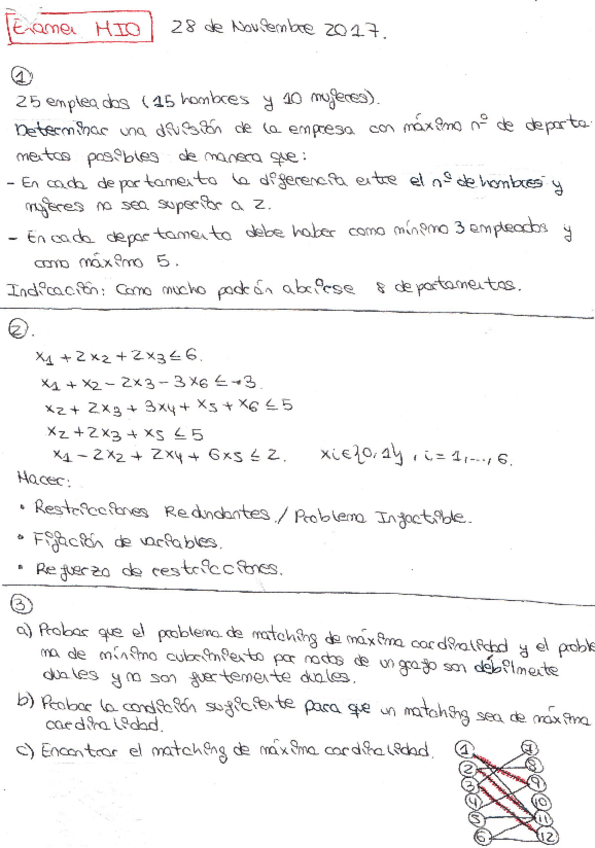 Examen MIO 28 de Noviembre 2017.
①
25 empleados (15 hombres y 10 mujeres).
Determinar una división de la empresa con máximo nº de departa-
mentos posibles de manera que:
- En cada departamento la diferencia entre el nº de hombres y
mujeres no sea superior a 2.
- En cada departamento debe haber como mínimo 3 empleados y
como máximo 5.
Indicación: Como mucho podrán abrirse 8 departamentos.
②.
x1 + 2x2 + 2x3 ≤ 6.
x1 + x2 - 2x3 - 3x6 ≤ -3.
x2 + 2x3 + 3x4 + x5 + x6 ≤ 5
x2 + 2x3 + x5 ≤ 5
x1 - 2x2 + 2x4 + 6x5 ≤ 2. xi ∈ {0,1}, i = 1,..., 6.
Hacer:
• Restricciones Redundantes / Problema Infactible.
• Fijación de variables.
• Refuerzo de restricciones.
③
a) Probar que el problema de matching de máxima cardinalidad y el proble
ma de mínimo cubrimiento por nodos de un grafo son débilmente
duales y no son fuertemente duales.
b) Probar la condición suficiente para que un matching sea de máxima
cardinalidad.
c) Encontrar el matching de máxima cardinalidad.
1 7
2 8
3 9
4 10
5 11
6 12